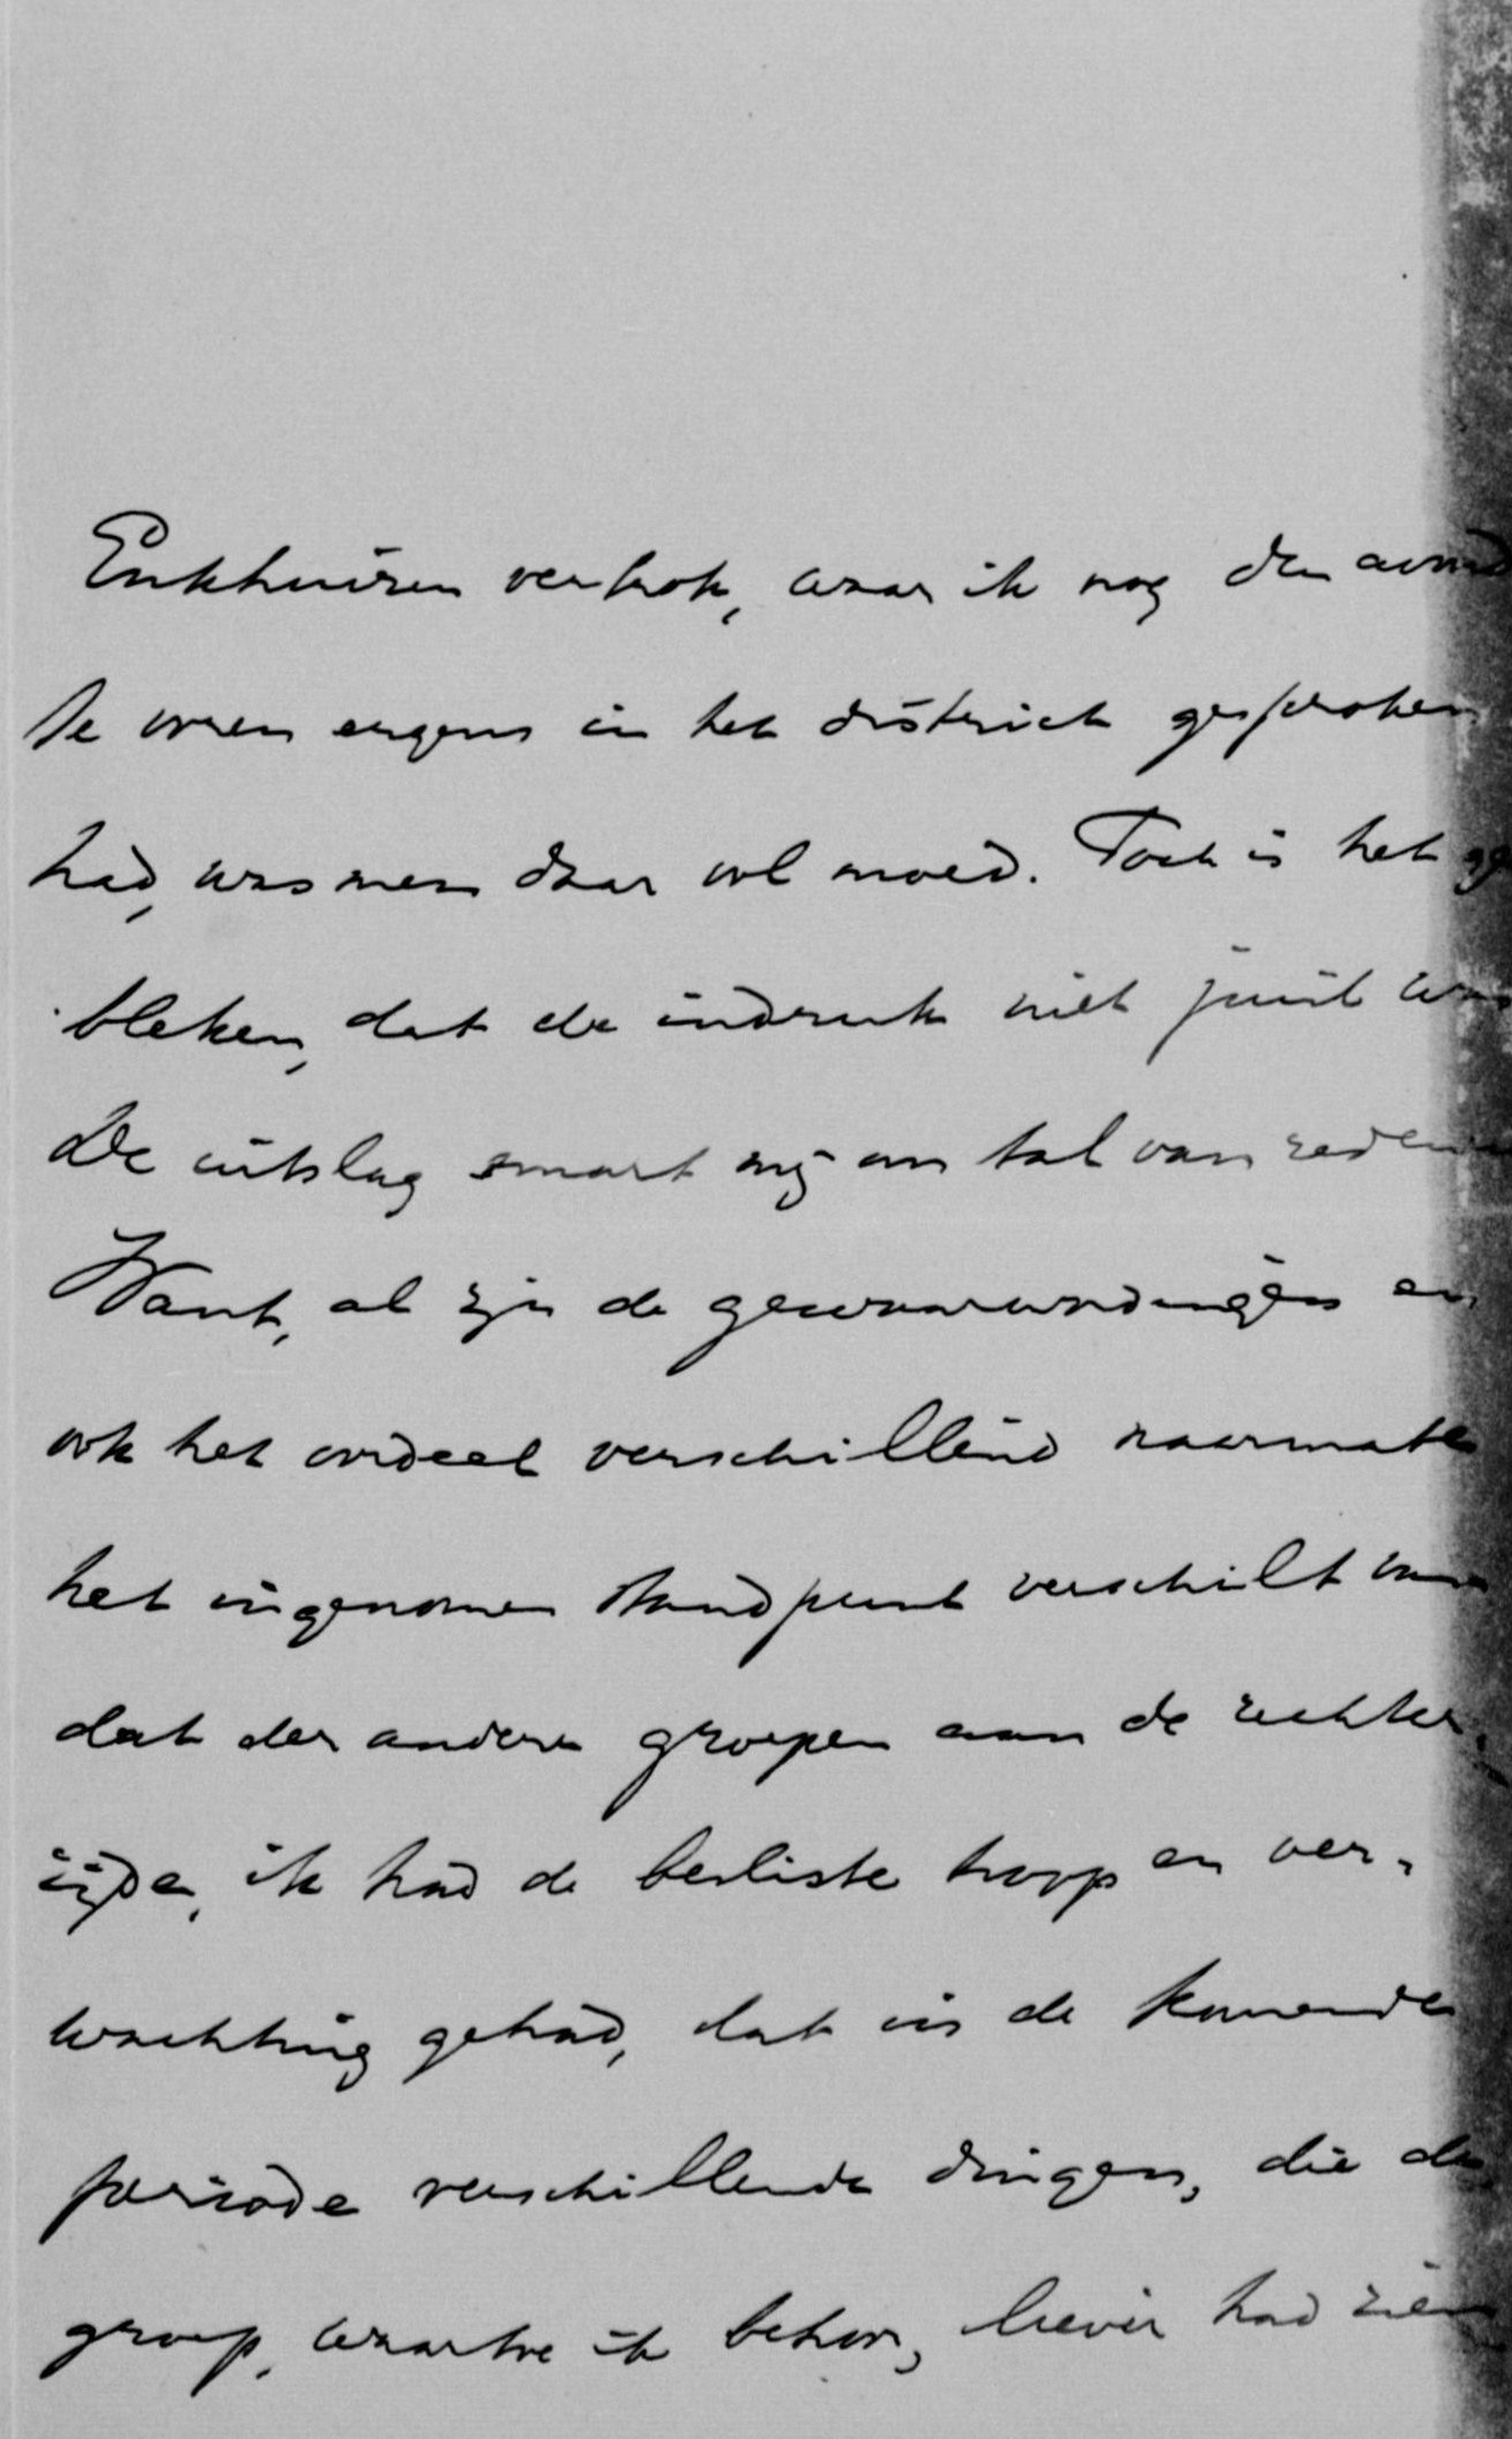 Enkhuizen vertrok, waar ik nog den avond
te voren ergens in het district gesproken
had, was men daar vol moed. Toch is het ge
bleken, dat de indruk niet juist was
De uitslag smart mij om tal van redenen
Want, al zijn de gewaarwordingen en
ook het oordeel verschillend naarmate
het ingenomen standpunt verschilt van
dat der andere groepen aan de rechter-
zijde, ik had de besliste hoop en ver-
wachting gehad, dat in de komende
periode verschillende dingen, die de
groep, waartoe ik behoor, liever had zien